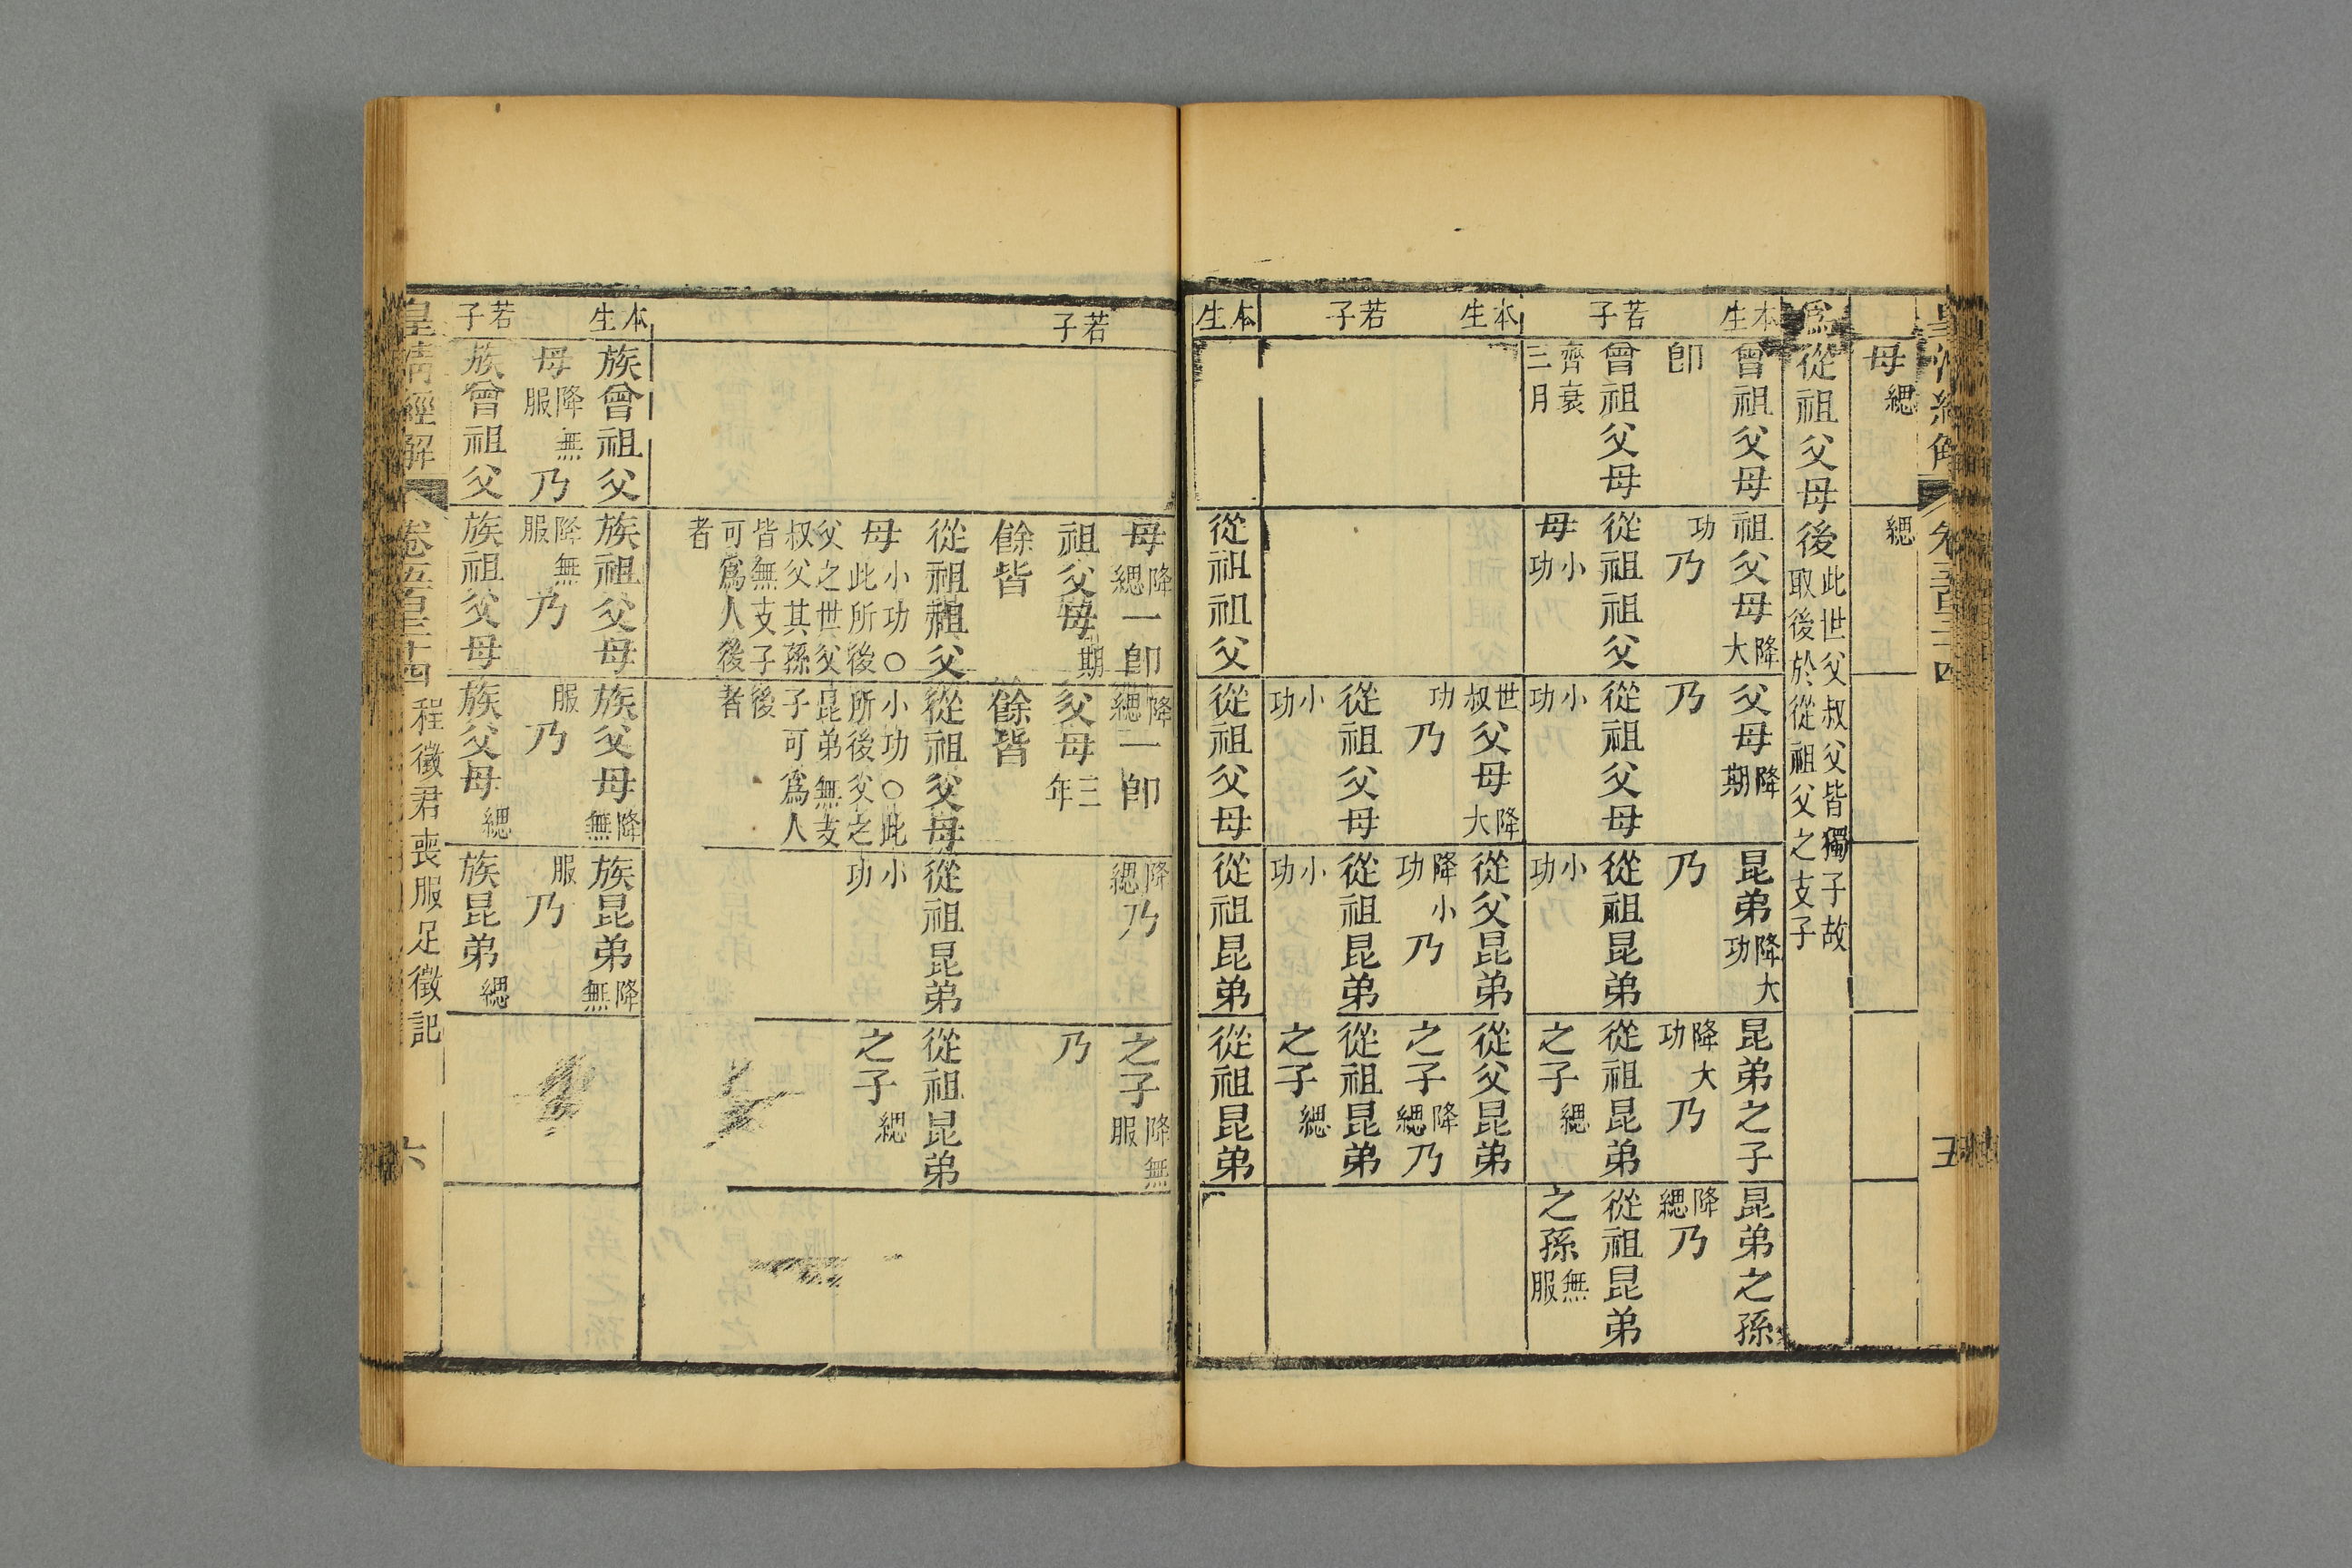 母緦
緦
爲從祖父母後此世父叔父皆獨子故
取後於從祖父之支子
本生
曾祖父母
卽
若子
曾祖父母
齊衰
三月
祖父母降大
功乃
從祖祖父
母小功
父母降期
乃
從祖父母
小功
昆弟降大功
乃
從祖昆弟
小功
昆弟之子
降大功乃
從祖昆弟
之子緦
昆弟之孫
降緦乃
從祖昆弟
之孫無服
本生
若子
世叔父母降大
功乃
從祖父母
小功
從父昆弟
降小功乃
從祖昆弟
小功
從父昆弟
之子降緦乃
從祖昆弟
之子緦
本生
從祖祖父
從祖父母
從祖昆弟
從祖昆弟
五
若子
母降緦一卽
祖父母期
餘皆
從祖祖父
母小功○
此所後
父之世父
叔父其孫
皆無支子
可爲人後
者
降緦一卽
父母三年
餘皆
從祖父母
小功○此
所後父之
昆弟無支
子可爲人
後
者
降緦乃
從祖昆弟
小功
之子降無服
乃
從祖昆弟
之子緦
本生
族曾祖父
母降無服
乃
若子
族曾祖父
族祖父母
降無服
乃
族祖父母
族父母降無
服乃
族父母緦
族昆弟降無
服乃
族昆弟緦
皇清經解
卷五百二十四
程徵君喪服足徵記
六